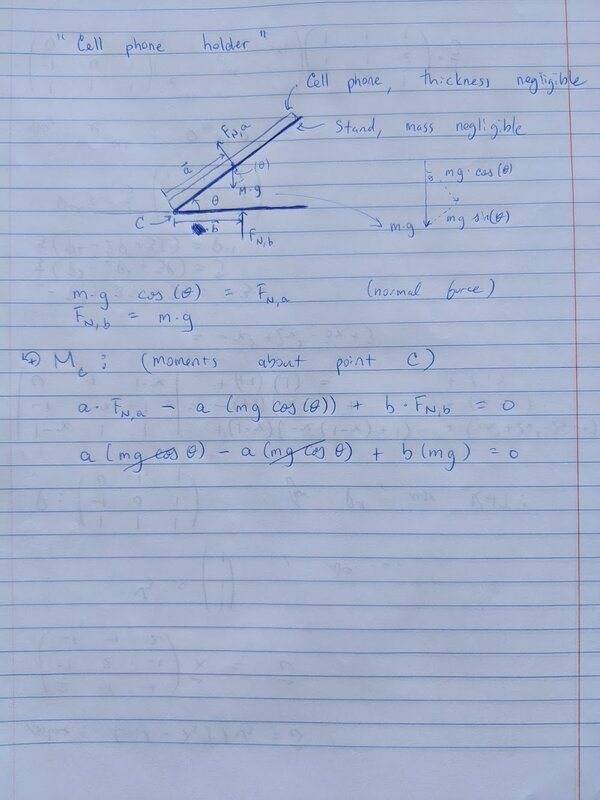 "Cell phone holder"
Cell phone, thickness negligible
Stand, mass negligible
F_N,a
a
(θ)
m·g
θ
C
b
F_N,b
θ
mg·cos(θ)
mg sin(θ)
m·g
m·g·cos(θ) = F_N,a (normal force)
F_N,b = m·g
M_c: (moments about point C)
a·F_N,a − a(mg cos(θ)) + b·F_N,b = 0
a(mg cos θ) − a(mg cos θ) + b(mg) = 0